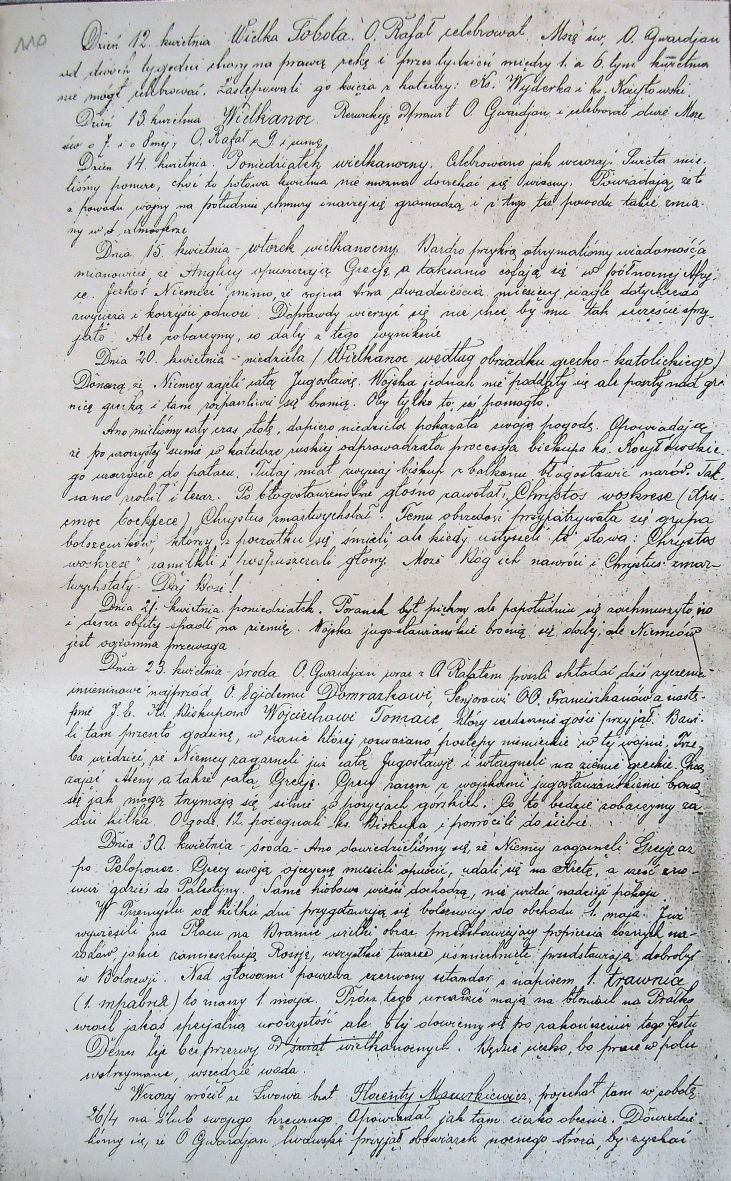 110
Dzień 12. kwietnia Wielka Sobota. O. Rafał celebrował. Mszę św. O. Gwardjan
od dwóch tygodni chory na prawą rękę i przez tydzień między 1. a 6. tym kwietnia
nie mógł celebrować. Zastępowali go księża z katedry: Ks. Wyderka i ks.
Dzień 13. kwietnia Wielkanoc. Rezurekcję odprawił O. Gwardjan i celebrował dwie Msze
św. o 7. i o 8mej, O. Rafał o 9. i sumę.
Dzień 14. kwietnia. Poniedziałek wielkanocny. Celebrowano jak wczoraj. Święta mie-
liśmy ponure, choć to połowa kwietnia nie można doczekać się wiosny. Powiadają, że to
z powodu wojny na południu chmury inaczej się gromadzą i z tego też powodu takie zmia-
ny w atmosferze
Dnia 15. kwietnia - wtorek wielkanocny. Bardzo przykrą otrzymaliśmy wiadomość a
mianowicie, że Anglicy opuszczają Grecję a także cofają się w północnej Afry-
ce. Jakoś Niemcy mimo, że wojna trwa dwadzieścia miesięcy ciągle dotychczas
zwycięża i korzyści odnosi. Doprawdy wierzyć się nie chce by mu tak szczęście sprzy-
jało. Ale zobaczymy, co dalej z tego wyniknie
Dnia 20. kwietnia - niedziela (Wielkanoc według obrządku grecko-katolickiego)
Donoszą, że Niemcy zajęli całą Jugosławię. Wojska jednak nie poddały się ale poszły nad gra-
nicę grecką i tam rozpaczliwie się bronią. Oby tylko to coś pomogło.
Ano mieliśmy cały czas słotę, dopiero niedziela pokazała swoją pogodę. Opowiadają,
że po uroczystej sumie w katedrze ruskiej odprowadzała procesja biskupa ks. Kocyłowskie-
go uroczyście do pałacu. Tutaj miał zwyczaj biskup z balkonu błogosławić naród. Tak
samo zrobił i teraz. Po błogosławieństwie głośno zawołał: "Chrystos woskrese (
), Chrystus zmartwychstał. Temu obrzędowi przypatrywała się grupa
bolszewików, którzy z początku się śmieli ale kiedy usłyszeli te słowa: "Chrystos
woskrese" zamilkli i pospuszczali głowy. Może Bóg ich nawróci i Chrystus zmar-
twychstały. Daj Boże!
Dnia 21. kwietnia poniedziałek. Poranek był piękny ale popołudniu się zachmurzyło
i deszcz obfity spadł na ziemię. Wojska jugosławiańskie bronią się dalej, ale Niemców
jest ogromna przewaga
Dnia 23. kwietnia - środa. O. Gwardjan wraz z O. Rafałem poszli składać dziś życzenia
imieninowe najprzód O. Egidemu Domrazkowi, Senjorowi OO. Franciszkanów a nastę-
pnie J. E. Ks. Biskupowi Wojciechowi Tomace, który serdecznie gości przyjął. Bawi-
li tam przeszło godzinę, w czasie której rozważano postępy niemieckie w tej wojnie. Trze-
ba wiedzieć, że Niemcy zagarnęli już całą Jugosławię i wtargnęli na ziemie greckie. Chcą
zająć Ateny a także całą Grecję. Grecy razem z wojskami jugosławiańskiemi bronią
się jak mogą trzymają się silnie po pozycjach górskich. Co to będzie zobaczymy za
dni kilka. O godz. 12. pożegnali ks. Biskupa i powrócili do siebie.
Dnia 30. kwietnia - środa - Ano dowiedzieliśmy się, że Niemcy zagarnęli Grecję aż
po Peloponez. Grecy swoją ojczyznę musieli opuścić, udali się na Kretę, a część
gdzieś do Palestyny. Same hiobowe wieści dochodzą, nie widać nadziei pokoju
W Przemyślu od kilku dni przygotowują się bolszewicy do obchodu 1. maja. Już
wywiesili na Placu na Bramie wielki obraz przedstawiający popiersia różnych na-
rodów jakie zamieszkują Rosję, wszystkie twarze uśmiechnięte przedstawiają dobrobyt
w Bolszewji. Nad głowami powiewa czerwony sztandar z napisem 1. trawnia
(1. травня) to znaczy 1 maja. Prócz tego urządzić mają na błoniach na
jakąś specjalną uroczystość ale o tej dowiemy się po zakończeniu tego festu
Deszcz leje bez przerwy od świąt wielkanocnych. Będzie ciężko, bo prace w polu
wstrzymane, wszędzie woda.
Wczoraj wrócił ze Lwowa brat Florenty Mazurkiewicz, pojechał tam w sobotę
26/4 na ślub swojego krewnego. Opowiadał jak tam ciężko obecnie. Dowiedzie-
liśmy się, że O Gwardjan lwowski przyjął obowiązek nocnego stróża, by zyskać